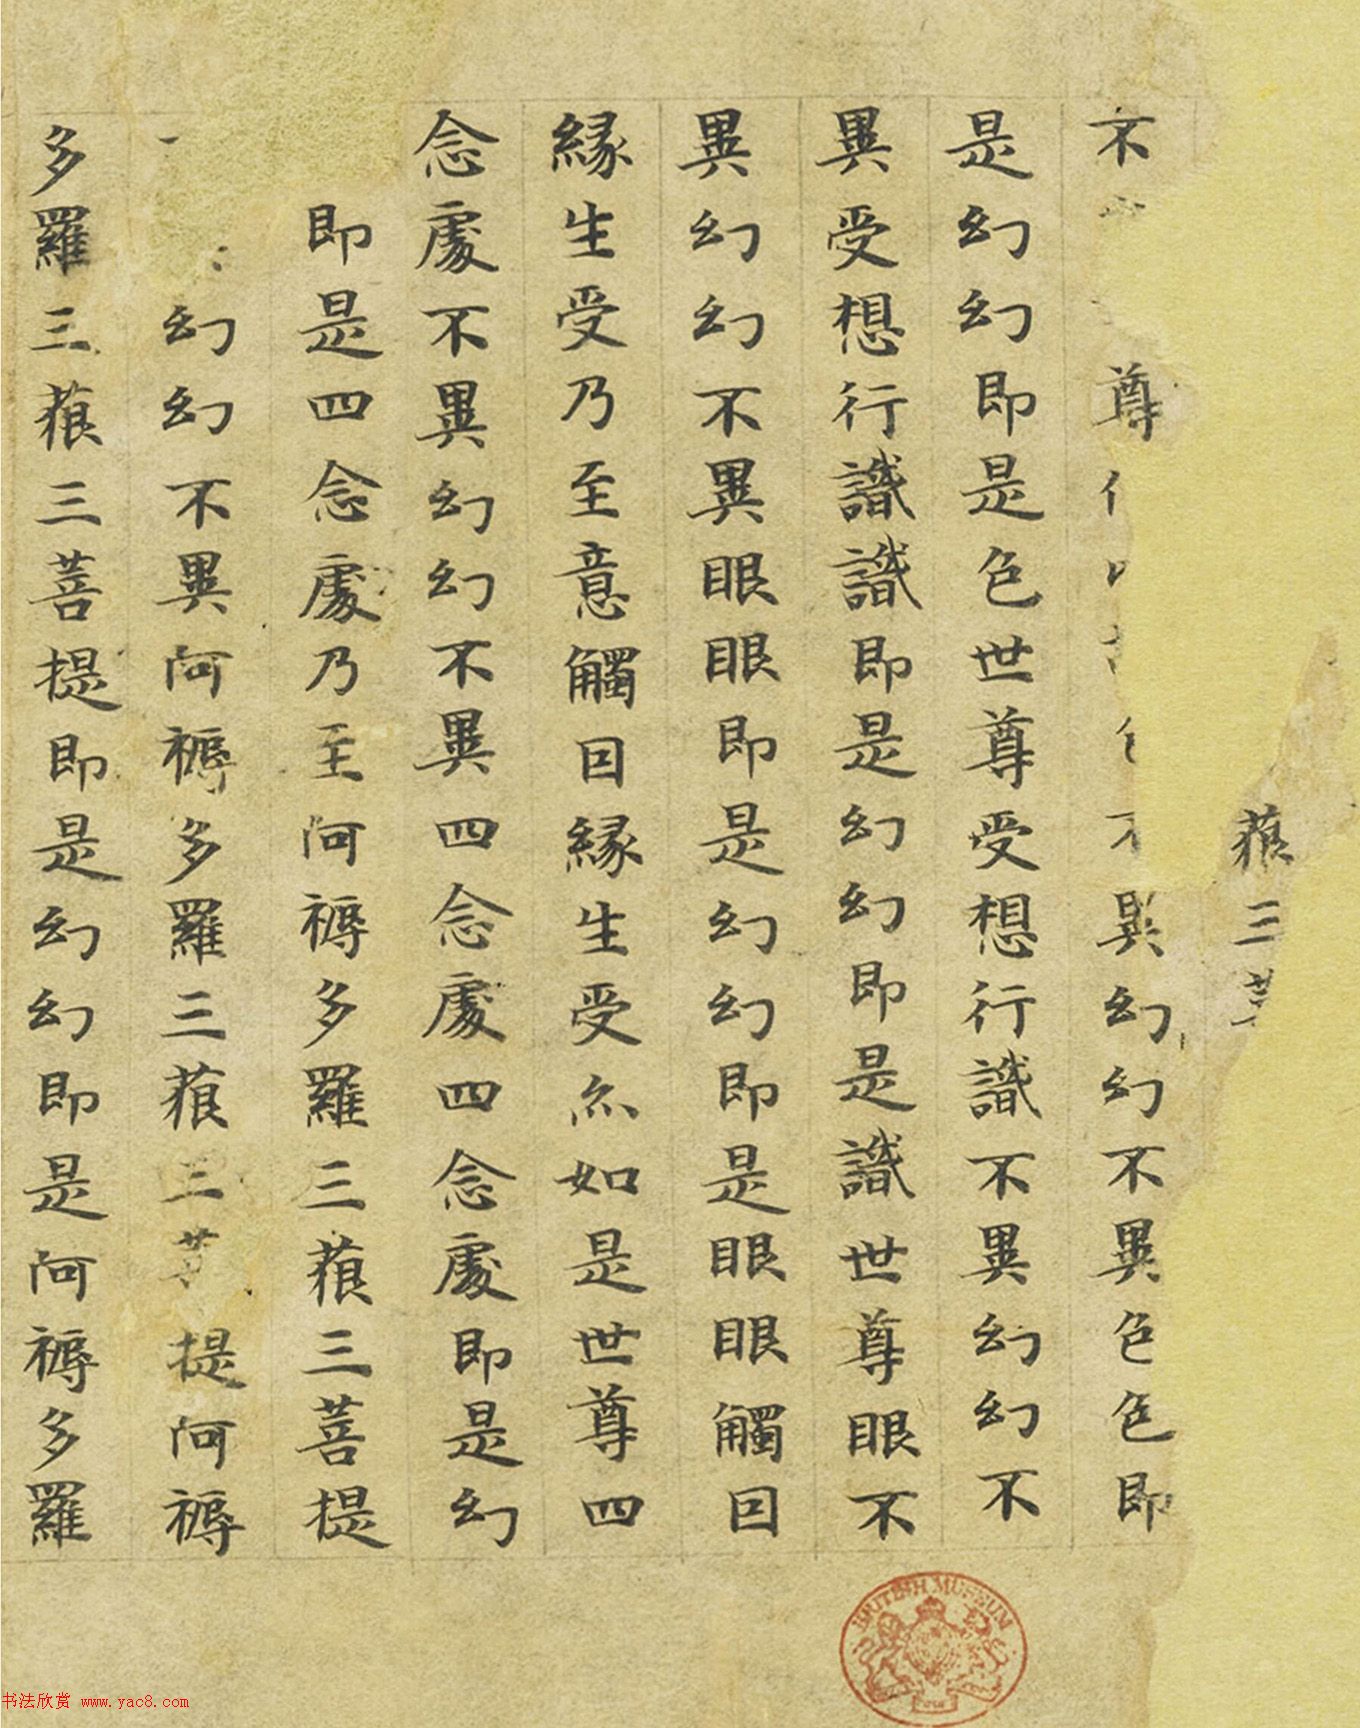 藐三菩
不尊不異幻幻不異色色即
是幻幻即是色世尊受想行識不異幻幻不
異受想行識識即是幻幻即是識世尊眼不
異幻幻不異眼眼即是幻幻即是眼眼觸因
緣生受乃至意觸因緣生受亦如是世尊四
念處不異幻幻不異四念處四念處即是幻
即是四念處乃至阿耨多羅三藐三菩提
幻幻不異阿耨多羅三藐三菩提阿耨
多羅三藐三菩提即是幻幻即是阿耨多羅
BRITISH MUSEUM
书法欣赏 www.yac8.com